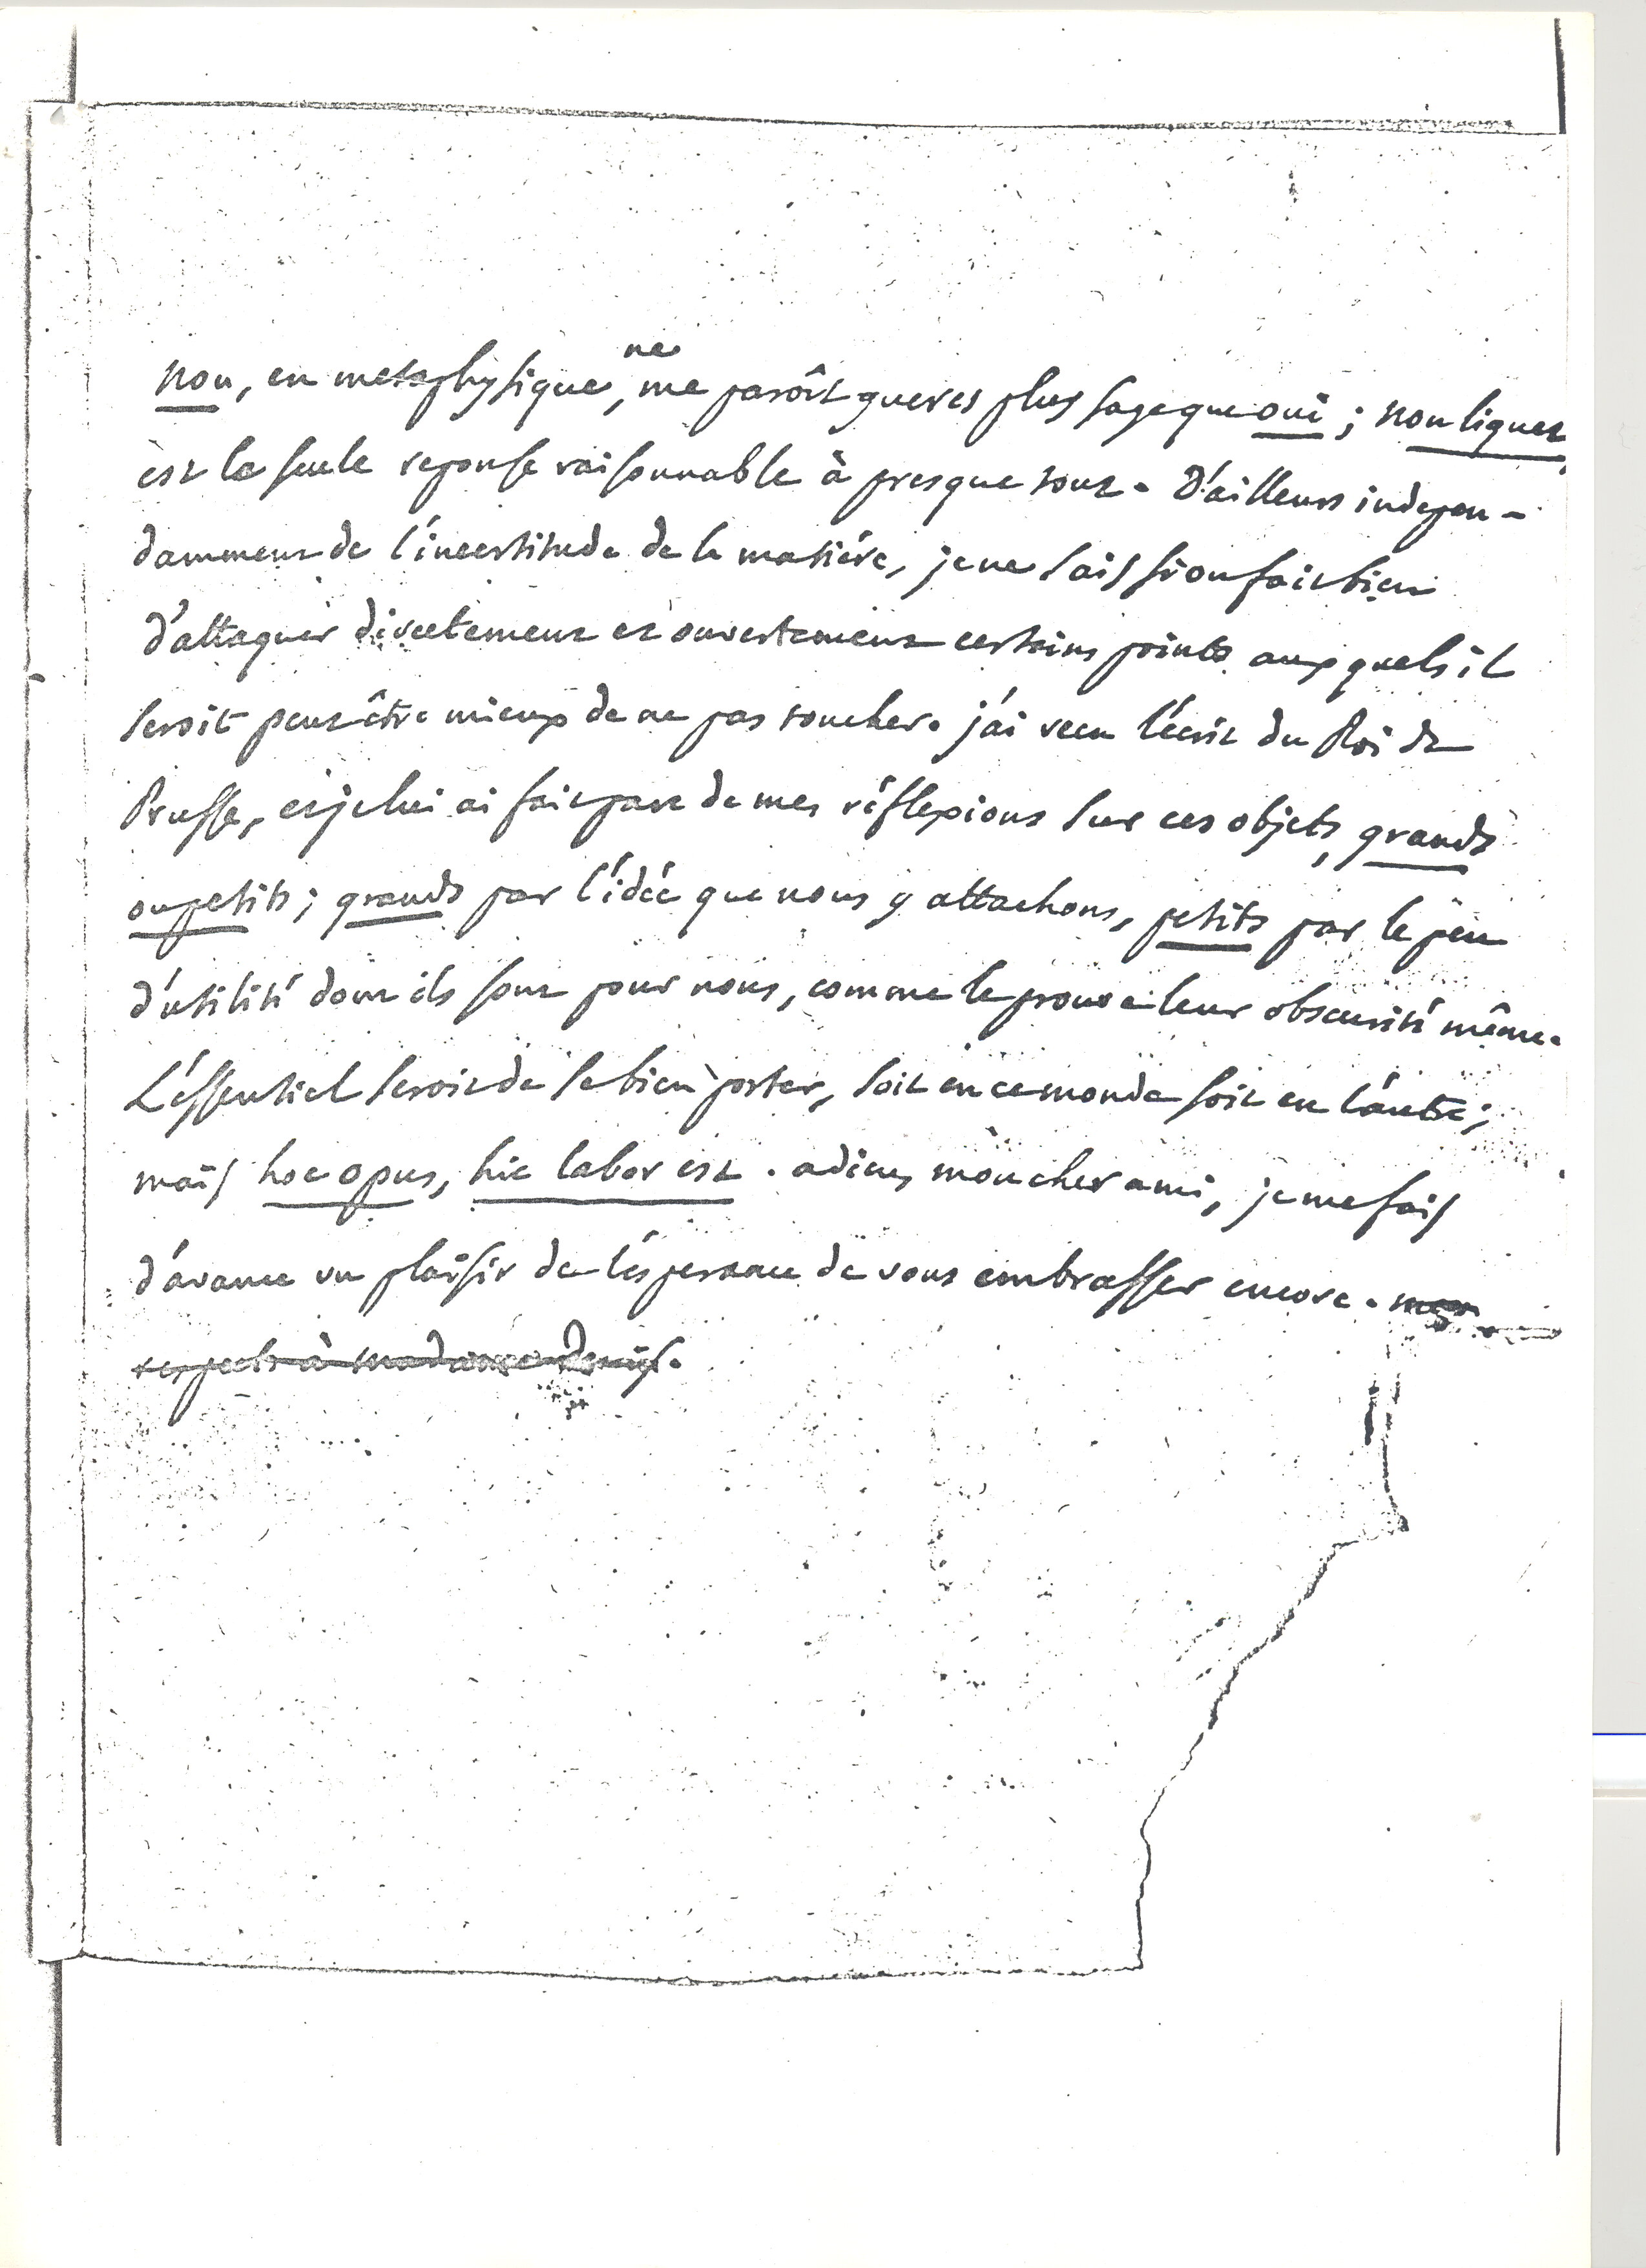 non, en metaphysique, ne me paroît gueres plus sage que oui ; non liquet
est la seule reponse raisonnable à presque tout. D'ailleurs indepen-
damment de l'incertitude de la matiére, je ne sais si on fait bien
d'attaquer directement et ouvertement certains points auxquels il
seroit peut être mieux de ne pas toucher. j'ai recu l'écrit du Roi de
Prusse, et je lui ai fait part de mes réflexions sur ces objets, grands
ou petits ; grands par l'idée que nous y attachons, petits par le peu
d'utilité dont ils sont pour nous, comme le prouve leur obscurité même.
L'essentiel seroit de se bien porter, soit en ce monde soit en l'autre ;
mais hoc opus, hic labor est. adieu, mon cher ami, je me fais
d'avance un plaisir de l'ésperance de vous embrasser encore. mes
respects à madame Denys.